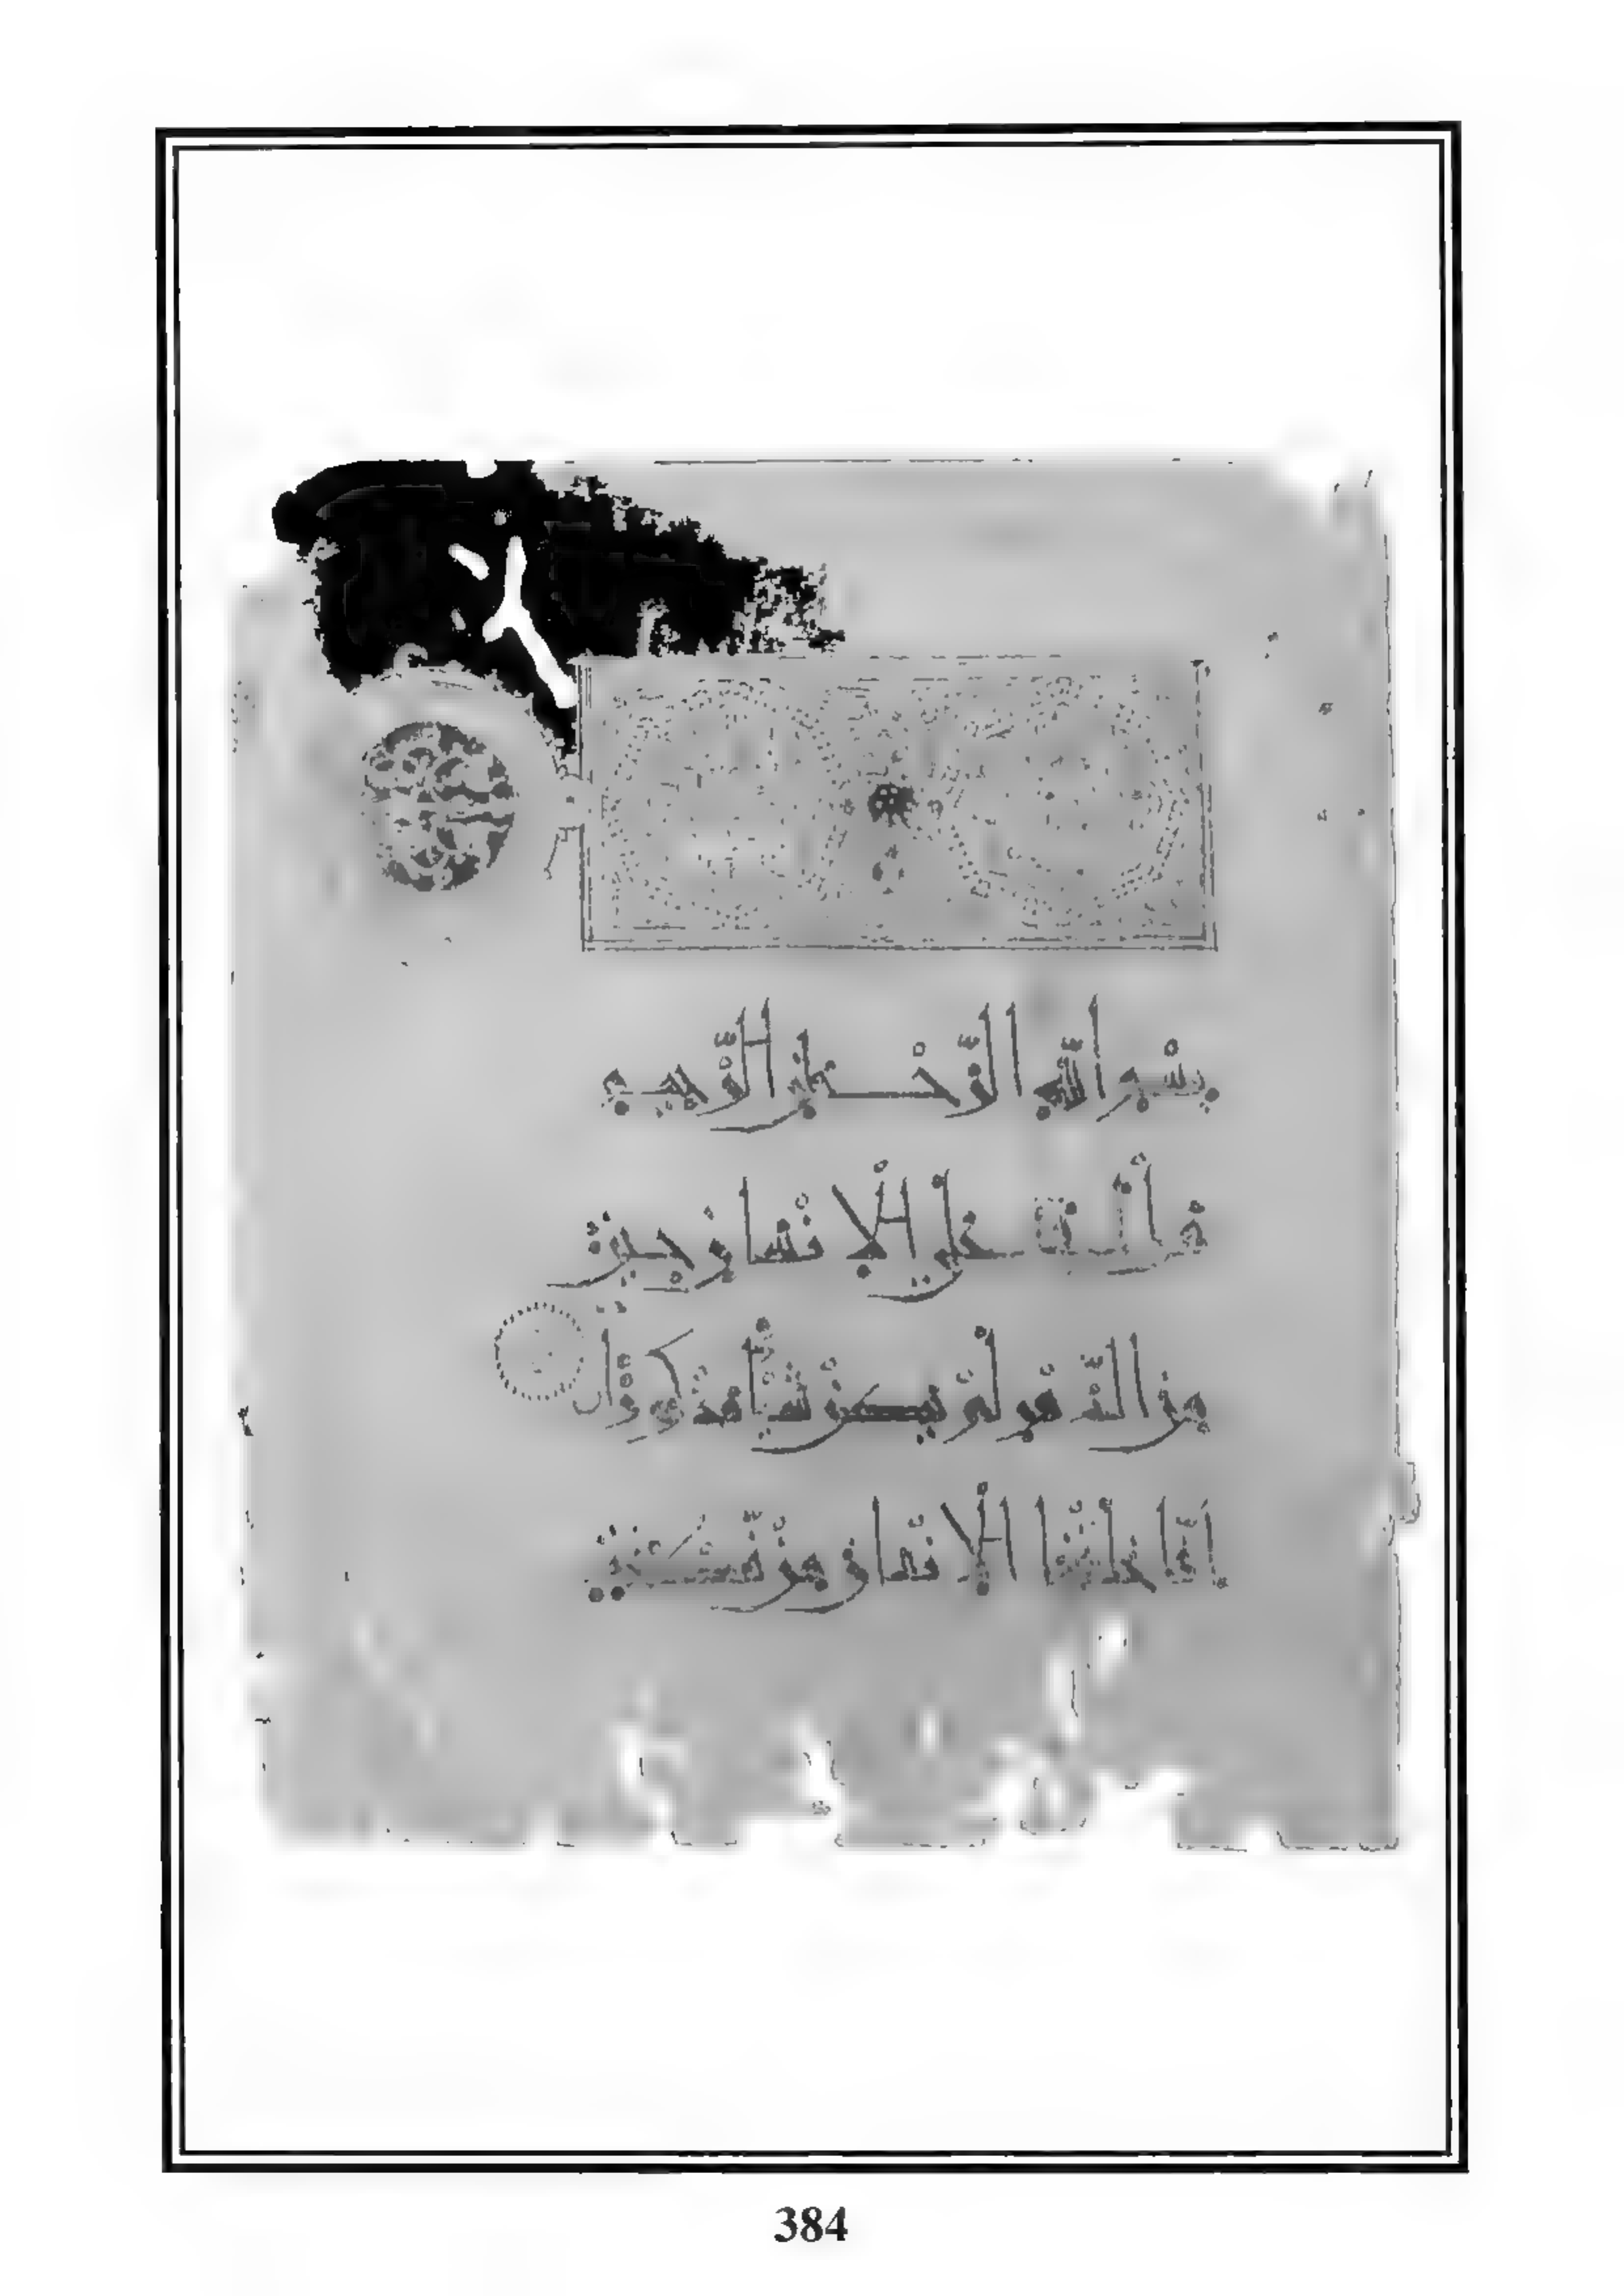 بسم الله الرحمن الرحيم
هل أتى على الإنسان حين
من الدهر لم يكن شيئا مذكورا
إنا خلقنا الإنسان من نطفة
384